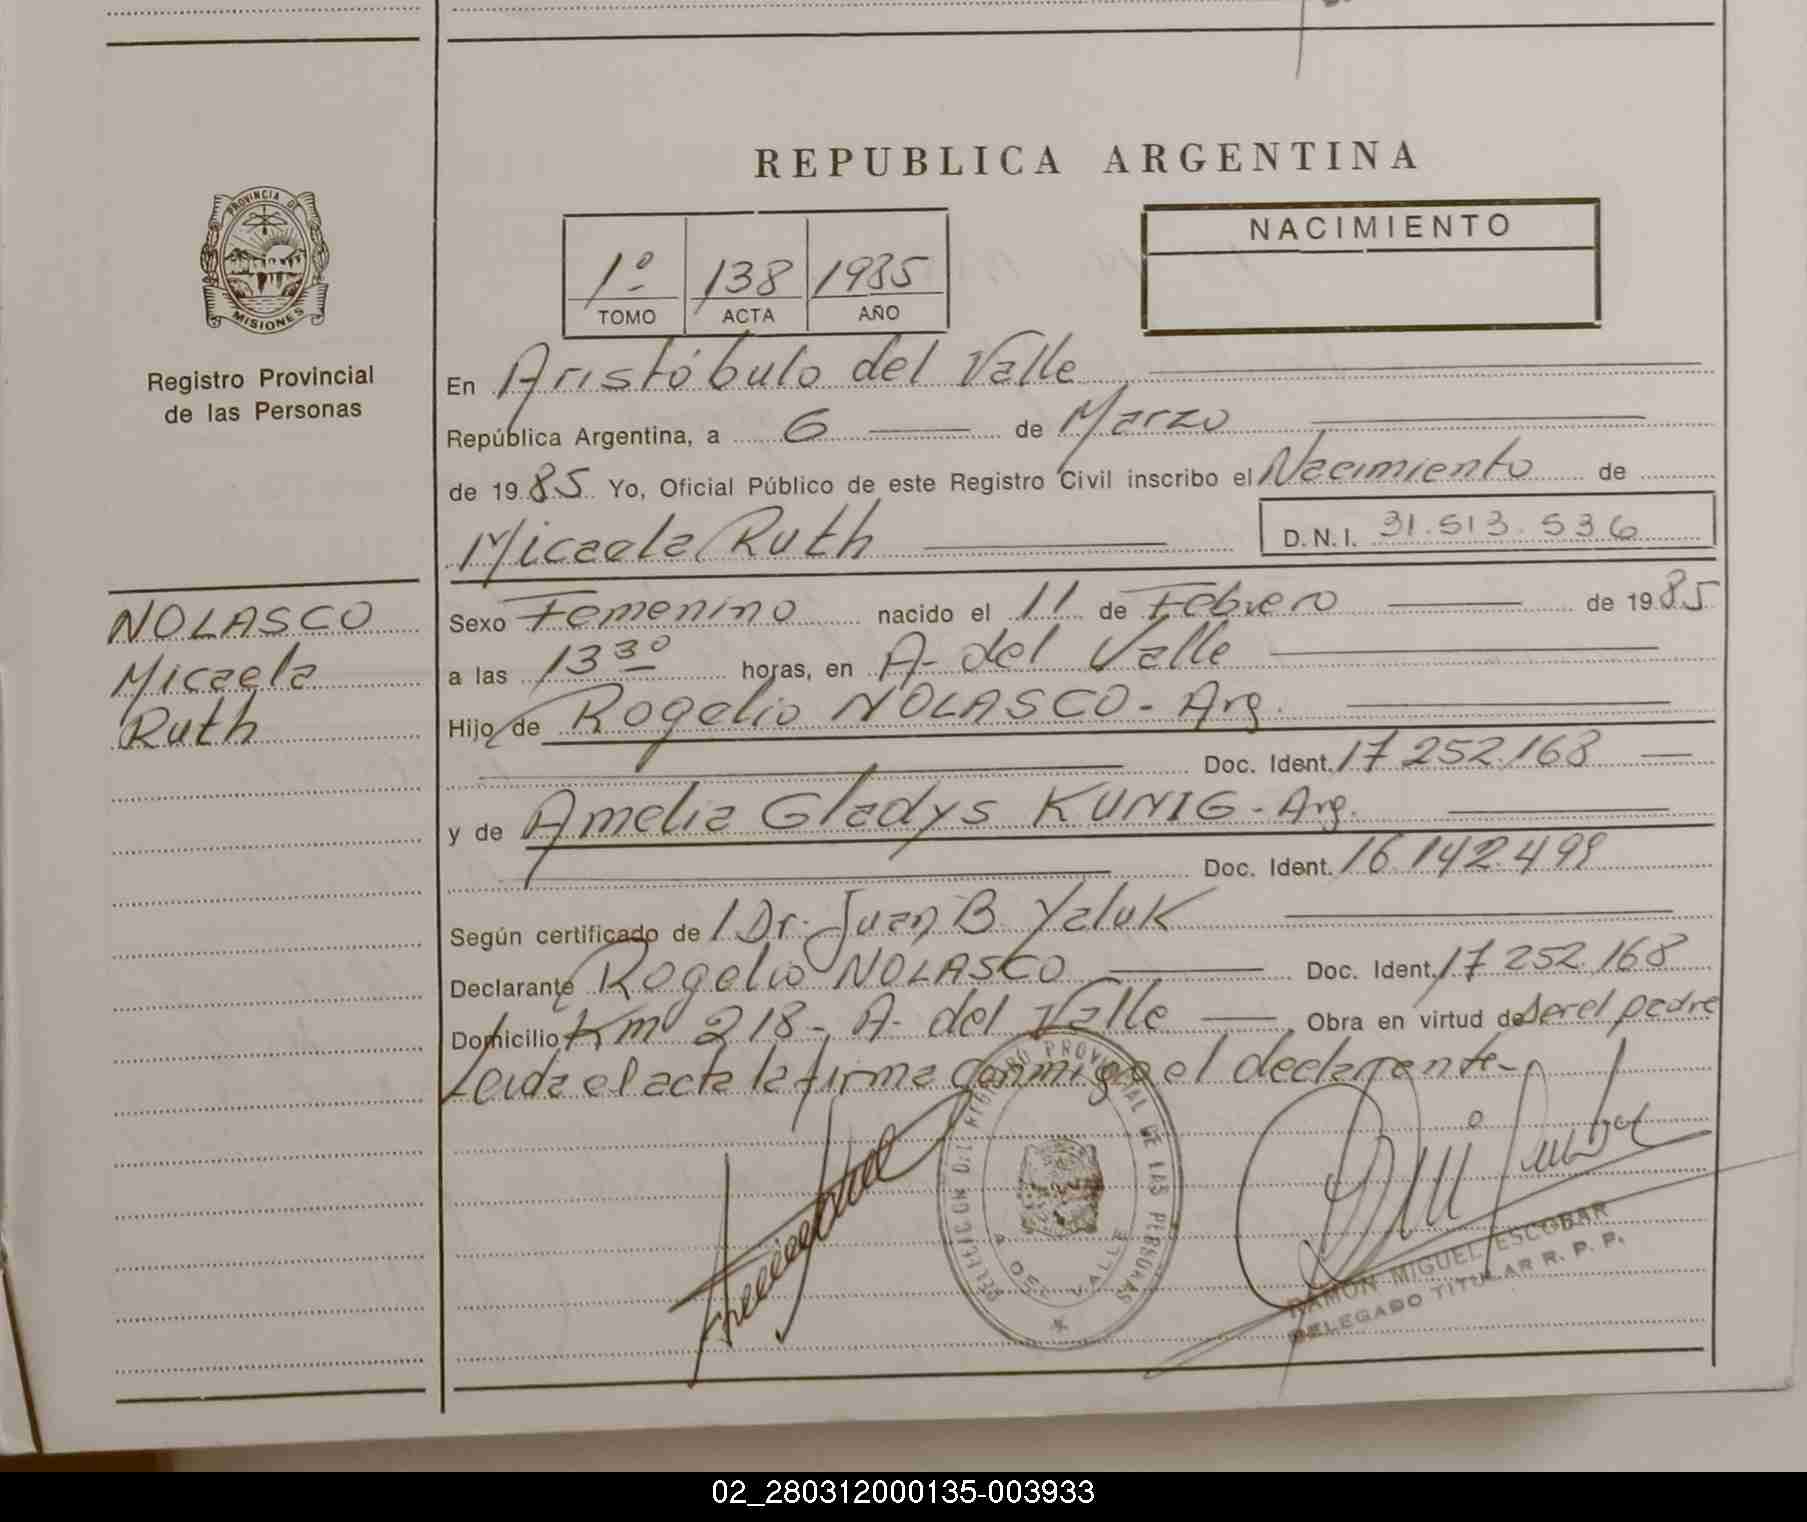 REPUBLICA ARGENTINA
PROVINCIA DE
MISIONES
Registro Provincial
de las Personas
1º 138 1985
TOMO ACTA AÑO
NACIMIENTO
En Aristóbulo del Valle
República Argentina, a 6 de Marzo
de 1985 Yo, Oficial Público de este Registro Civil inscribo el Nacimiento de
Micaela Ruth D.N.I. 31.513.536
NOLASCO
Micaela
Ruth
Sexo Femenino nacido el 11 de Febrero de 1985
a las 13 30 horas, en A. del Valle
Hijo de Rogelio NOLASCO - Arg.
Doc. Ident. 17 252.168
y de Amelia Gladys KUNIG - Arg.
Doc. Ident. 16.142.499
Según certificado de 1 Dr. Juan B. Yaluk
Declarante Rogelio NOLASCO Doc. Ident. 17 252.168
Domicilio Km 218 - A. del Valle Obra en virtud de ser el padre
Leida el acta la firma conmigo el declarante-
REGISTRO PROVINCIAL DE LAS PERSONAS
A. DEL VALLE
RAMON MIGUEL ESCOBAR
DELEGADO TITULAR R. P. P.
02_280312000135-003933